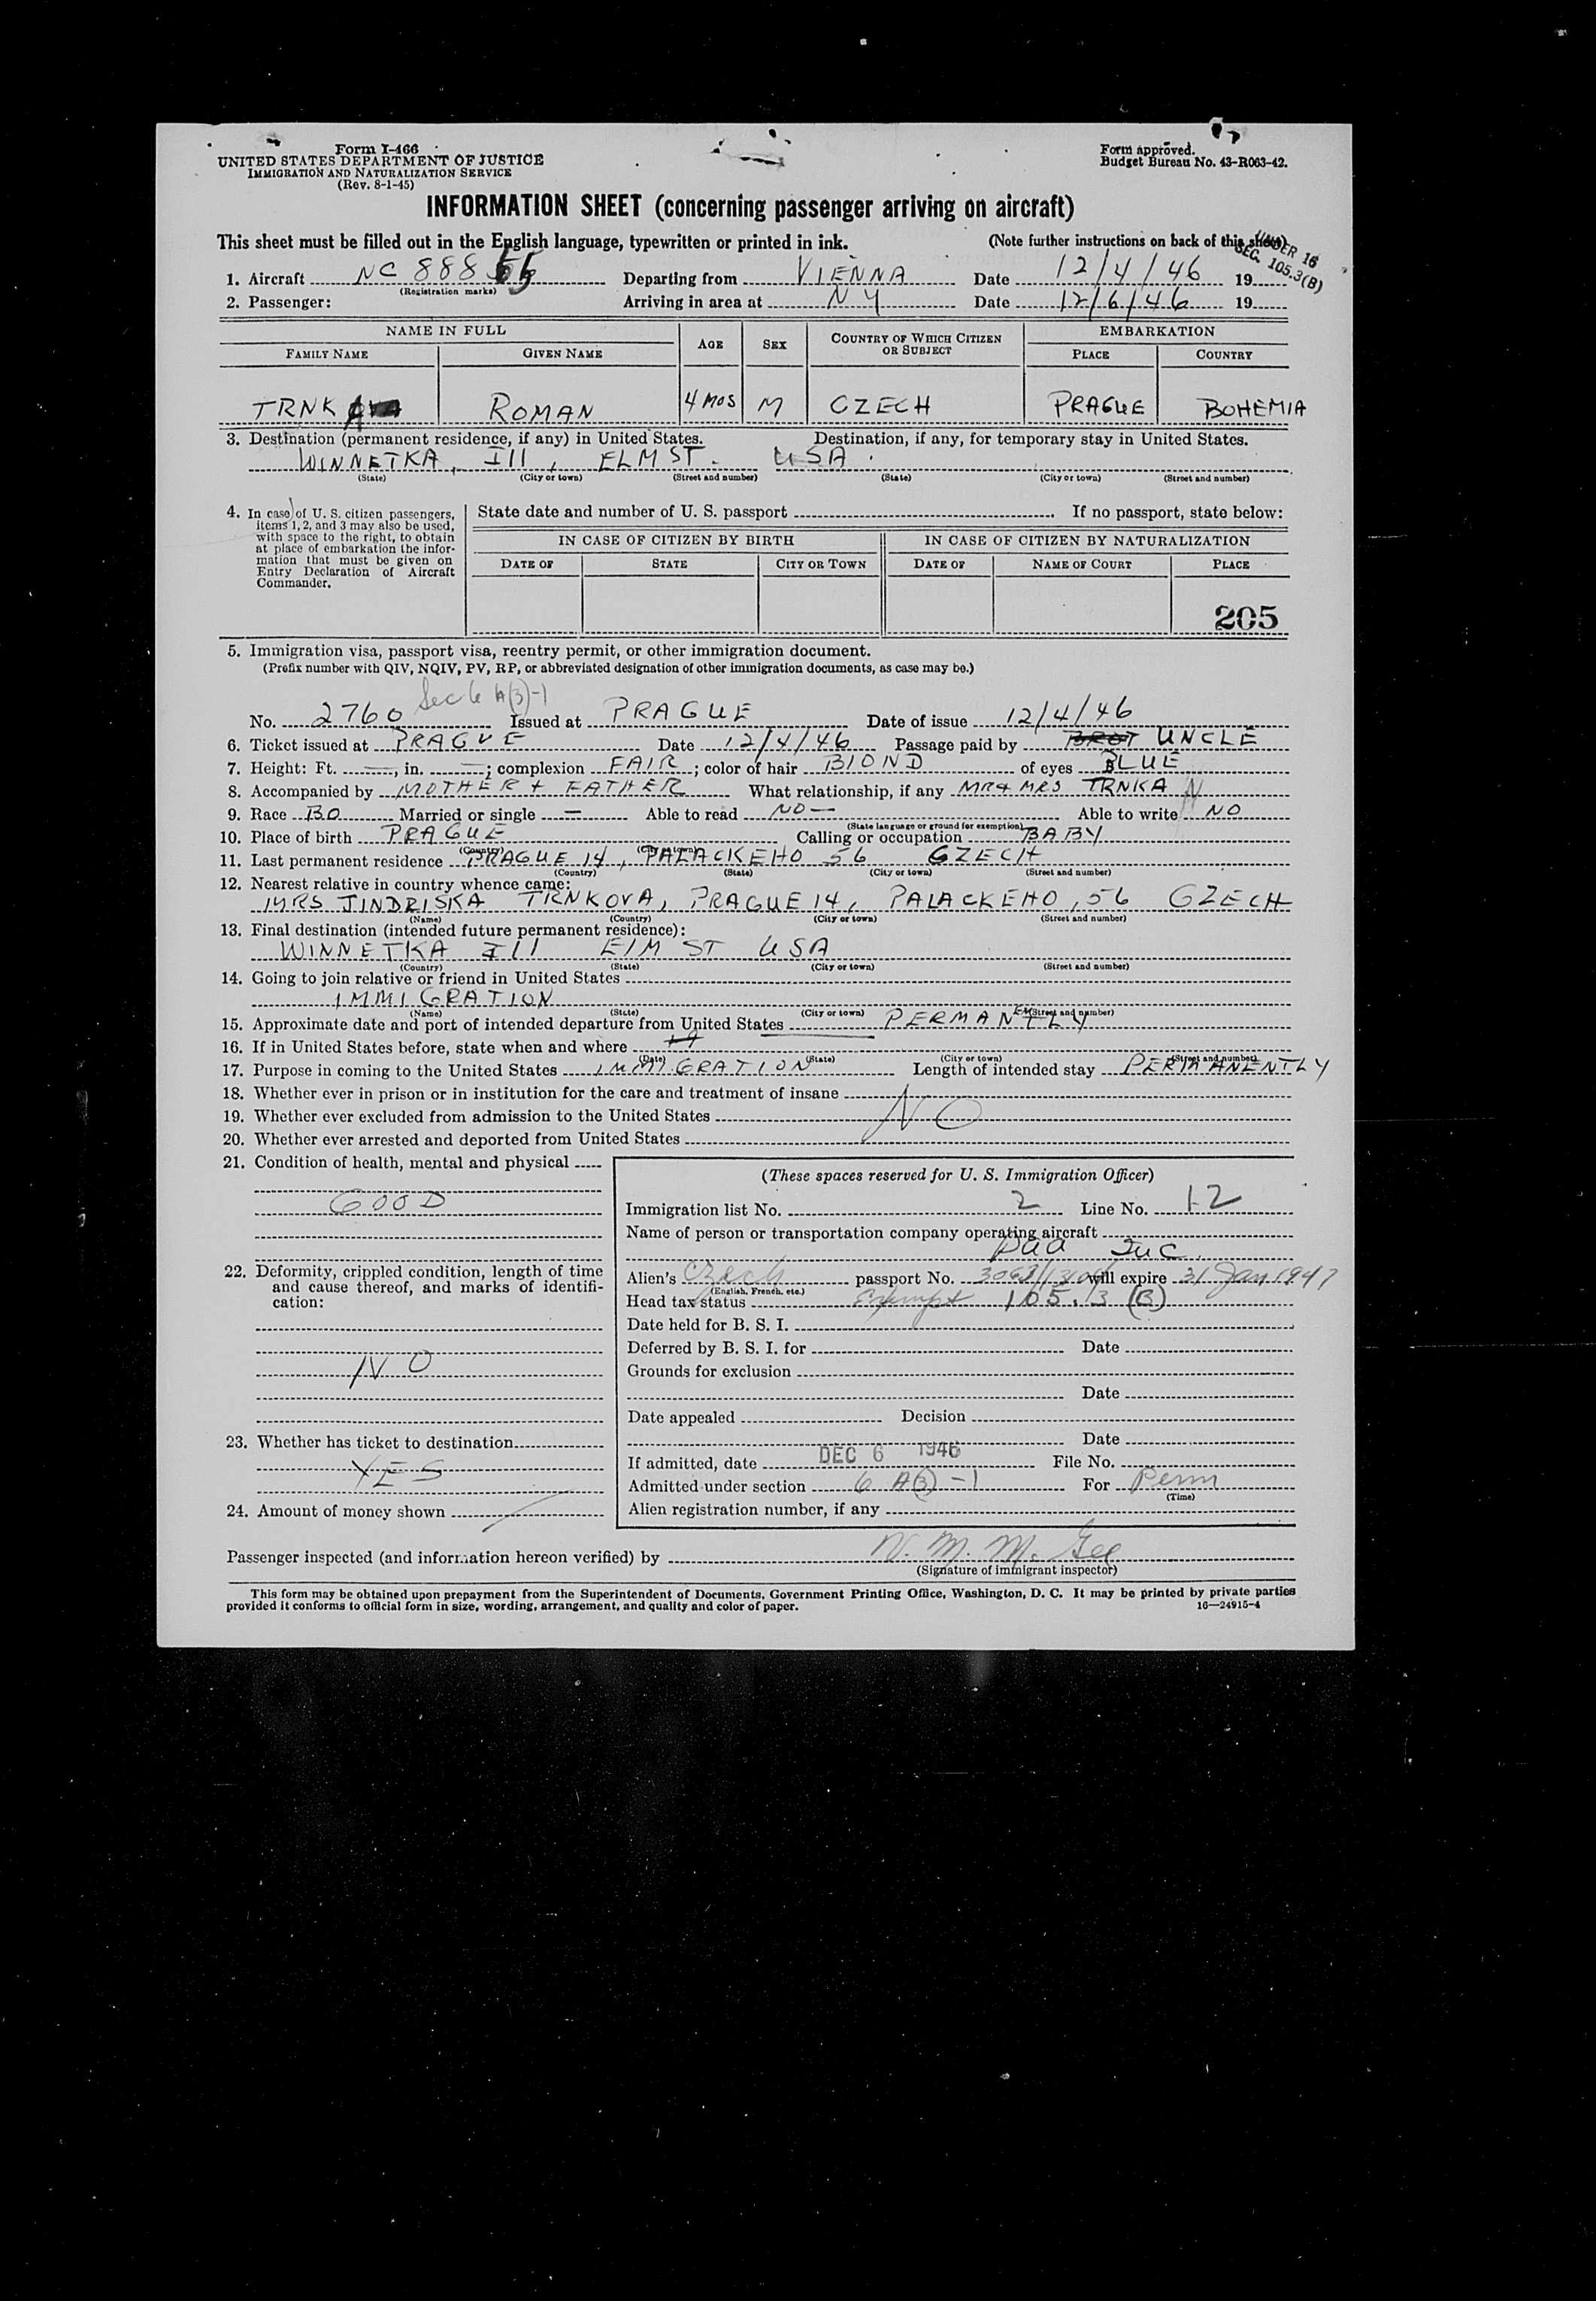 Form I-466
UNITED STATES DEPARTMENT OF JUSTICE
IMMIGRATION AND NATURALIZATION SERVICE
(Rev. 8-1-45)
Form approved.
Budget Bureau No. 43-R063-42.
INFORMATION SHEET (concerning passenger arriving on aircraft)
This sheet must be filled out in the English language, typewritten or printed in ink. (Note further instructions on back of this sheet)
UNDER 16
SEC. 105.3(B)
1. Aircraft NC 888 Departing from VIENNA Date 12/4/46 19
(Registration marks)
2. Passenger: Arriving in area at NY Date 12/6/46 19
NAME IN FULL AGE SEX COUNTRY OF WHICH CITIZEN OR SUBJECT EMBARKATION
FAMILY NAME GIVEN NAME PLACE COUNTRY
TRNKA ROMAN 4 MOS M CZECH PRAGUE BOHEMIA
3. Destination (permanent residence, if any) in United States. Destination, if any, for temporary stay in United States.
WINNETKA, Ill, ELM ST. USA.
(State) (City or town) (Street and number) (State) (City or town) (Street and number)
4. In case of U. S. citizen passengers, items 1, 2, and 3 may also be used, with space to the right, to obtain at place of embarkation the information that must be given on Entry Declaration of Aircraft Commander.
State date and number of U. S. passport If no passport, state below:
IN CASE OF CITIZEN BY BIRTH IN CASE OF CITIZEN BY NATURALIZATION
DATE OF STATE CITY OR TOWN DATE OF NAME OF COURT PLACE
205
5. Immigration visa, passport visa, reentry permit, or other immigration document.
(Prefix number with QIV, NQIV, PV, RP, or abbreviated designation of other immigration documents, as case may be.)
Sec 6 A(3)-1
No. 2760 Issued at PRAGUE Date of issue 12/4/46
6. Ticket issued at PRAGUE Date 12/4/46 Passage paid by UNCLE
7. Height: Ft. —, in. —; complexion FAIR; color of hair BlOND of eyes BLUE
8. Accompanied by MOTHER + FATHER What relationship, if any MR & MRS TRNKA
9. Race BO Married or single — Able to read NO — Able to write NO
(State language or ground for exemption)
10. Place of birth PRAGUE Calling or occupation BABY
(Country) (City or town)
11. Last permanent residence PRAGUE 14, PALACKEHO 56 CZECH
(Country) (State) (City or town) (Street and number)
12. Nearest relative in country whence came:
MRS JINDRISKA TRNKOVA, PRAGUE 14, PALACKEHO, 56 CZECH
(Name) (Country) (City or town) (Street and number)
13. Final destination (intended future permanent residence):
WINNETKA Ill ElM ST USA
(Country) (State) (City or town) (Street and number)
14. Going to join relative or friend in United States
IMMIGRATION
(Name) (State) (City or town) (Street and number)
15. Approximate date and port of intended departure from United States PERMANENTLY
16. If in United States before, state when and where
(Date) (State) (City or town) (Street and number)
17. Purpose in coming to the United States IMMIGRATION Length of intended stay PERMANENTLY
18. Whether ever in prison or in institution for the care and treatment of insane
19. Whether ever excluded from admission to the United States NO
20. Whether ever arrested and deported from United States
21. Condition of health, mental and physical
GOOD
22. Deformity, crippled condition, length of time and cause thereof, and marks of identification:
NO
23. Whether has ticket to destination
YES
24. Amount of money shown
(These spaces reserved for U. S. Immigration Officer)
Immigration list No. 2 Line No. 12
Name of person or transportation company operating aircraft
Paa Inc.
Alien's Czech passport No. will expire 31 Jan 1947
(English, French, etc.)
Head tax status Exempt 105.3 (B)
Date held for B. S. I.
Deferred by B. S. I. for Date
Grounds for exclusion
Date
Date appealed Decision
Date
If admitted, date DEC 6 1946 File No.
Admitted under section 6 A(3)-1 For Perm
(Time)
Alien registration number, if any
Passenger inspected (and information hereon verified) by N. M. McGee
(Signature of immigrant inspector)
This form may be obtained upon prepayment from the Superintendent of Documents, Government Printing Office, Washington, D. C. It may be printed by private parties
provided it conforms to official form in size, wording, arrangement, and quality and color of paper. 16—24915-4